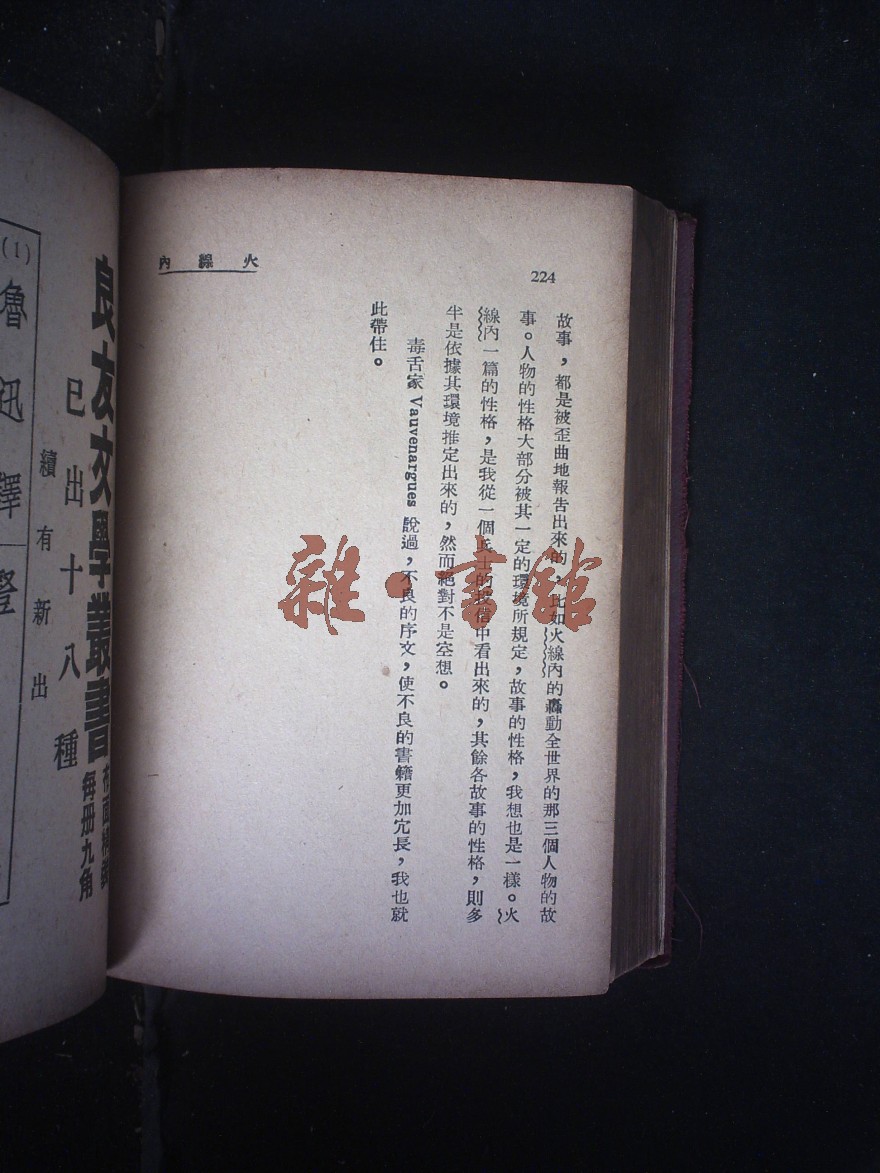 火線內
224
故事，都是被歪曲地報告出來的，比如火線內的轟動全世界的那三個人物的故
事。人物的性格大部分被其一定的環境所規定，故事的性格，我想也是一樣。火
線內一篇的性格，是我從一個兵士的投信中看出來的，其餘各故事的性格，則多
半是依據其環境推定出來的，然而絕對不是空想。
毒舌家 Vauvenargues 說過，不良的序文，使不良的書籍更加冗長，我也就
此帶住。
雜·書館
良友文學叢書
布面精裝
每冊九角
已出十八種
續有新出
(1)
魯迅譯